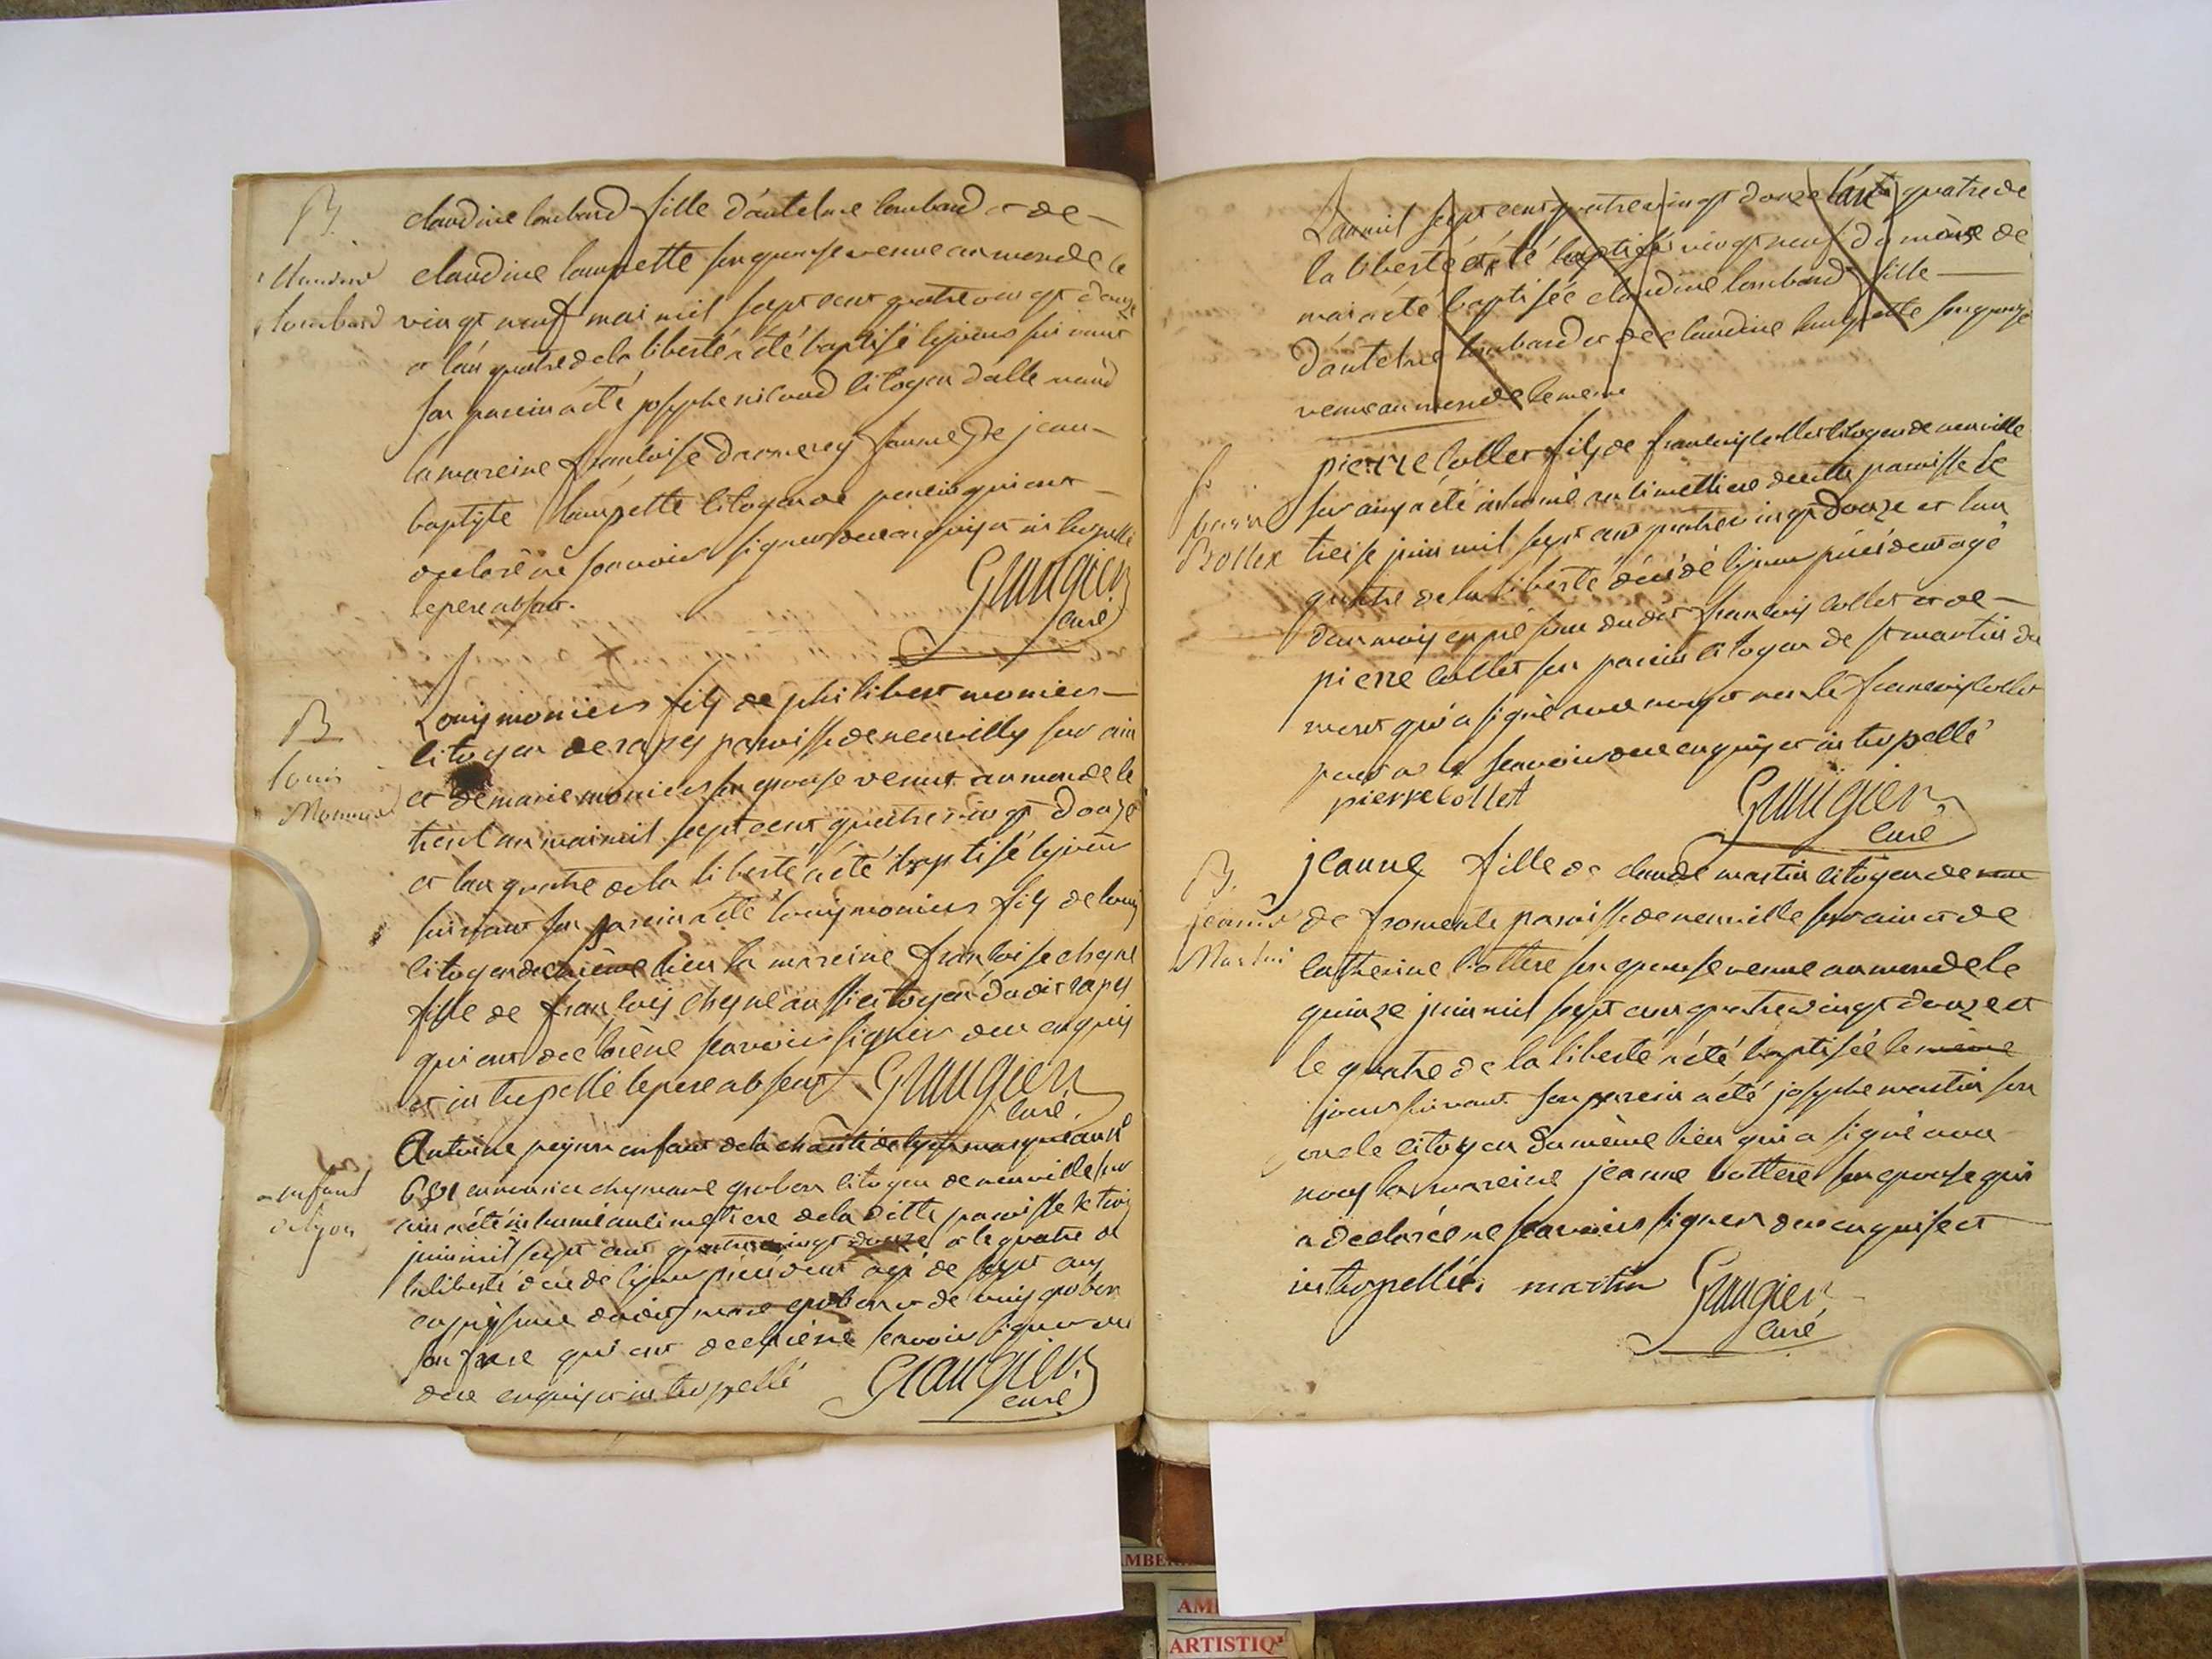 B.
Claudine
lombard
claudine lombard fille d'antelme lombard et de
claudine laurpette son epouse venue au monde le
vingt neuf mai mil sept cent quatre vingt douze
et l'an quatre de la liberté a été baptisé le jour suivant
son parein a été josephe citoyen
la mareine francoise fame de jean
baptiste laurpette citoyen de qui ont
declaré ne scavoir signer de ce enquis et interpellé
le pere absent.
Graugier
curé
B
louis
Monnier
Louis moniers fils de philibert moniers
citoyen de rapes paroisse de neuville sur ain
et de marie moniers son epouse venut au monde le
trent un mai mil sept cent quatre vingt douze
et l'an quatre de la liberté a été baptisé le jour
suivant son parein a été louis moniers fils de louis
citoyen du même lieu la mareine francoise chesne
fille de francois chesne aussi citoyen dudit rapes
qui ont declaré ne scavoir signer de ce enquis
et interpellé le pere absent Graugier
curé.
enfant
de lyon
Antoine enfant de la charité de lyon marqué au n°
en nourice ches marie grobon citoyen de neuville sur
ain a été inhumé au cimetiere de la ditte paroisse le trois
juin mil sept cent quatre vingt douze et le quatre de
la liberté decedé le jour précédent agé de sept ans
en présence dudit marc grobon et de louis grobon
son frere qui ont declaré ne scavoir signer
de ce enquis et interpellé Graugier
curé
L'an mil sept cent quatre vingt douze l'an quatre de
la liberté a été baptisé vingt neuf du même de
mai a été baptisée claudine lombard fille
d'antelme lombard et de claudine laurpette son epouse
venue au monde le meme
pierre
Collet
pierre Collet fils de francois collet citoyen de neuville
sur ain a été inhumé au cimettiere de cette paroisse le
treise juin mil sept cent quatre vingt douze et l'an
quatre de la liberté décédé le jour précédent agé
deux mois en présence dudit francois collet et de
pierre collet son parein citoyen de st martin du
mont qui a signé avec nous et non le francois collet
pour ne le scavoir de ce enquis et interpellé
pierre collet Graugier
curé
B.
jeanne
Martin
jeanne fille de claude martin citoyen de
de fromente paroisse de neuville sur ain et de
catherine bottere son epouse venue au monde le
quinze juin mil sept cent quatre vingt douze et
le quatre de la liberté a été baptisée le même
jour suivant son parein a été josephe martin son
oncle citoyen du même lieu qui a signé avec
nous la mareine jeanne bottere son epouse qui
a declarée ne scavoir signer de ce enquise et
interpellée. martin Graugier
curé
AMBER
AM
ARTISTIQ